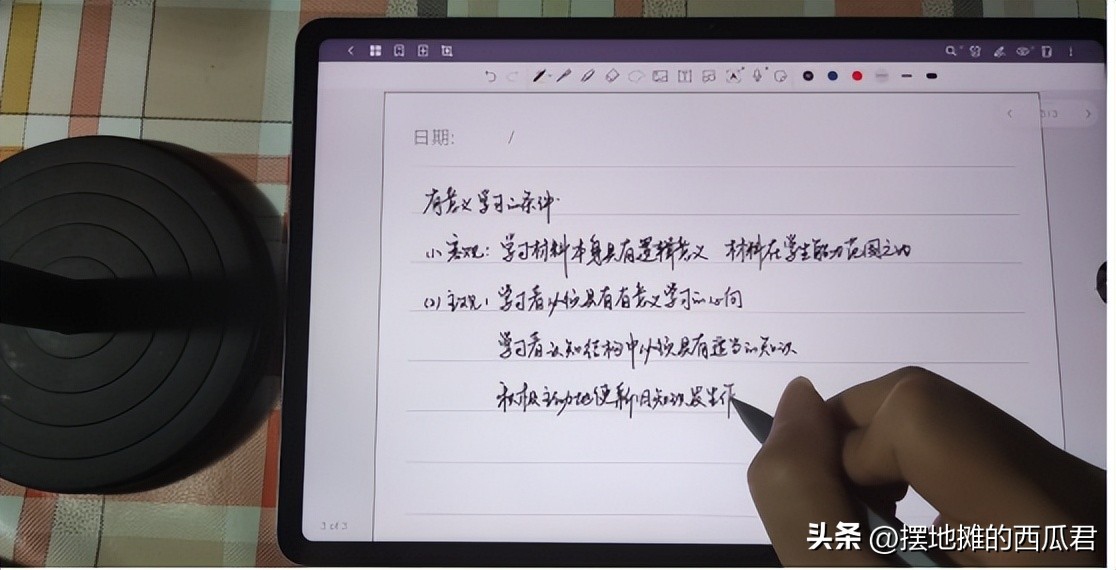 3/3
日期: /
有意义学习的条件
(1) 客观: 学习材料本身具有逻辑意义 材料在学生能力范围之内
(2) 主观: 学习者必须具有有意义学习的心向
学习者认知结构中必须具有适当的知识
积极主动地使新旧知识发生作
3 of 3
头条 @摆地摊的西瓜君